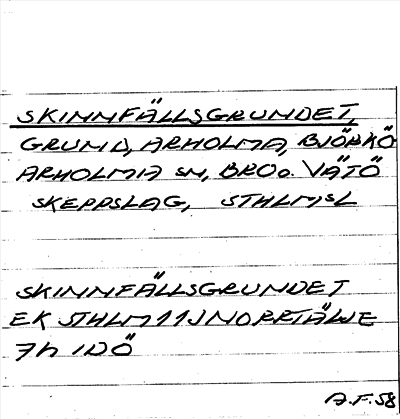 SKINNFÄLLSGRUNDET,
GRUND, ARHOLMA, BJÖRKÖ
ARHOLMA SN, BRO o. VÄTÖ
SKEPPSLAG, STHLMSL
SKINNFÄLLSGRUNDET
EK STHLM 11J NORRTÄLJE
7h IDÖ
A.F. 58